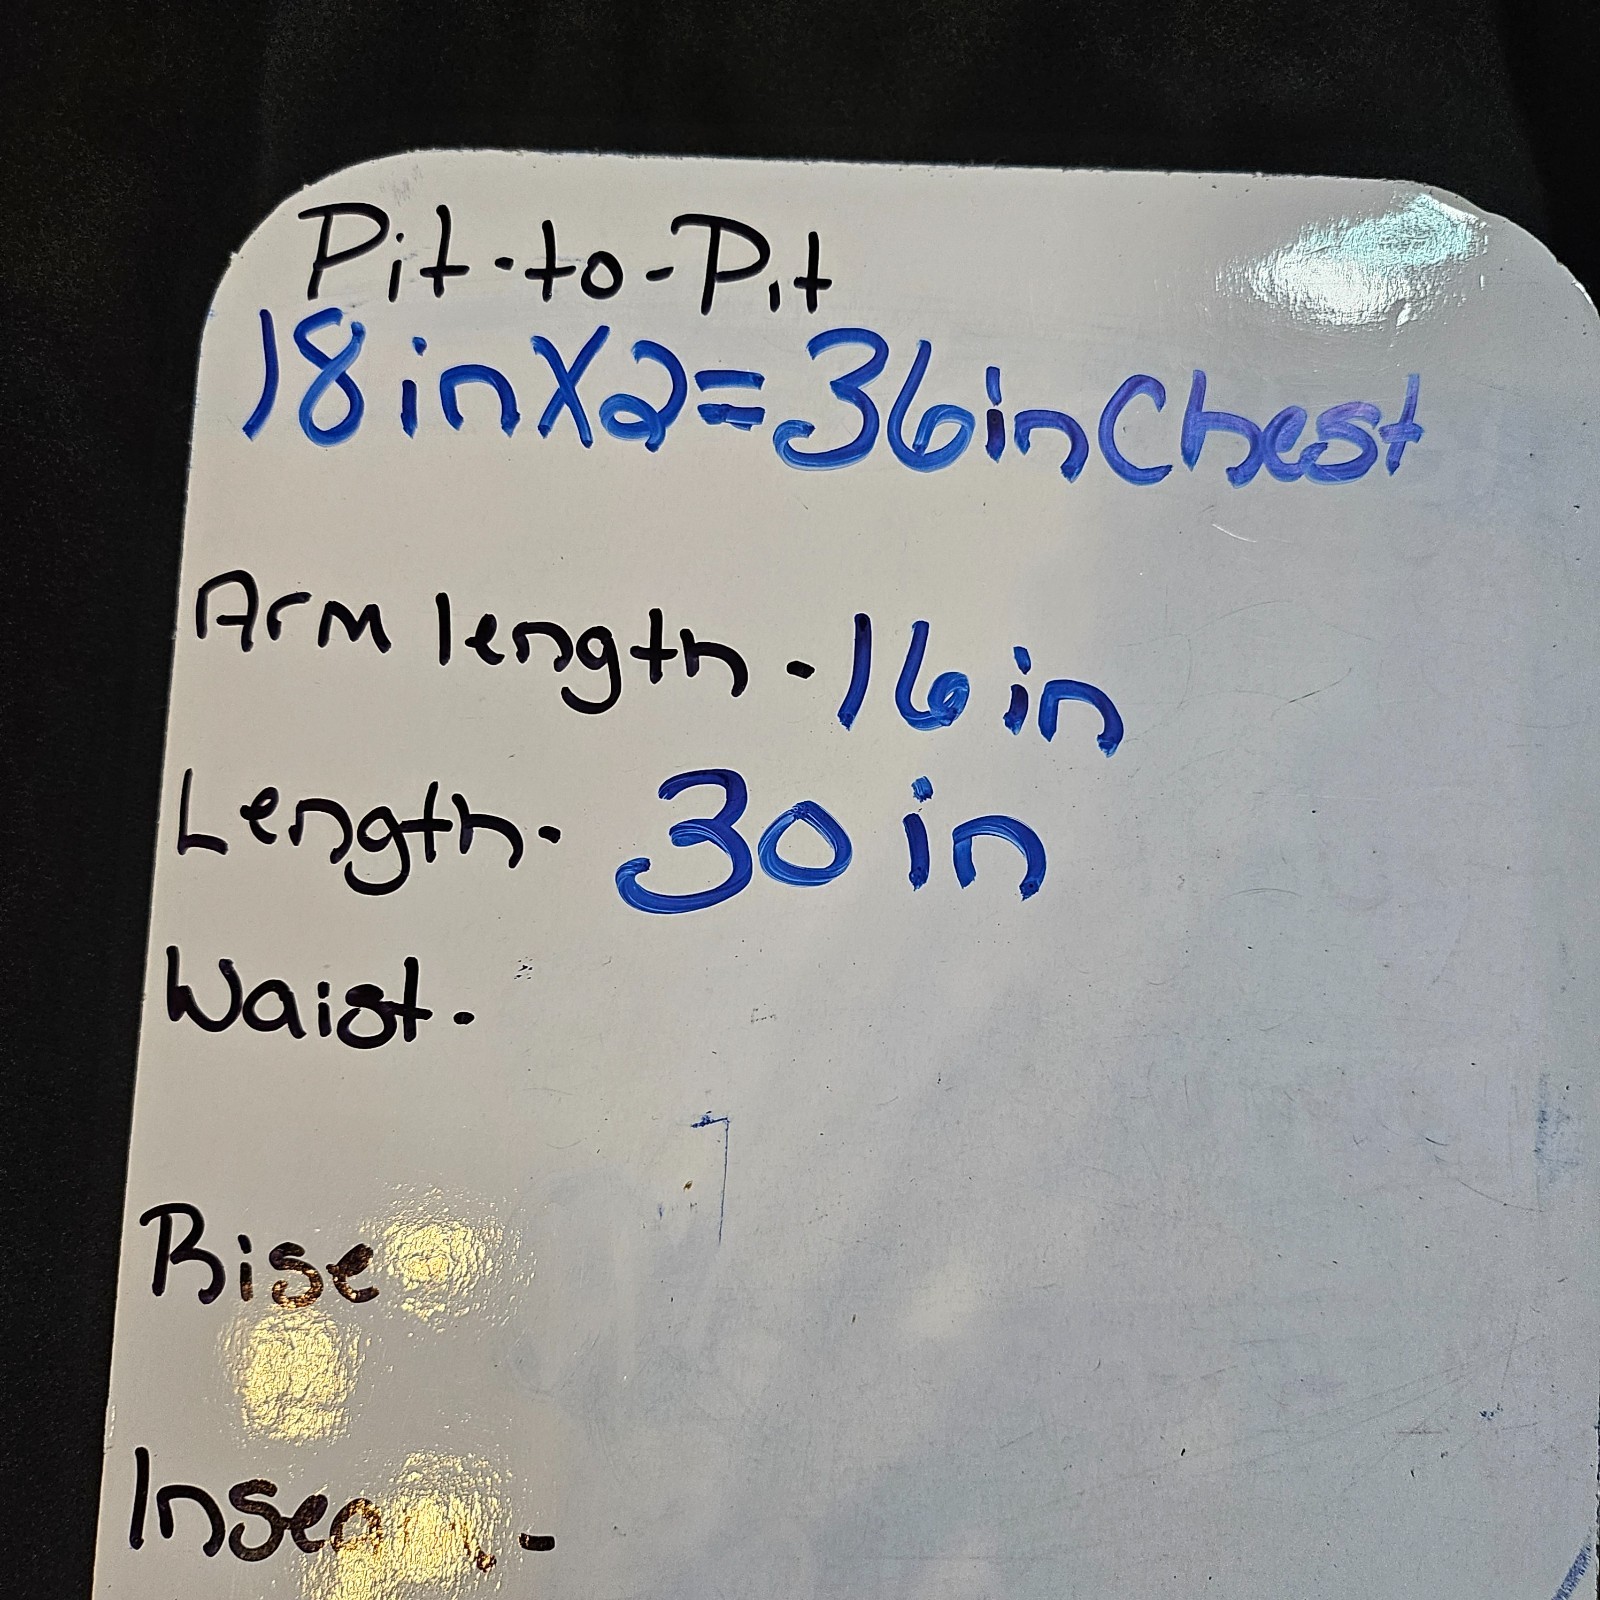 Pit-to-Pit
18inX2=36inChest
Arm length-16in
Length-30in
Waist-
Rise
Inseam-